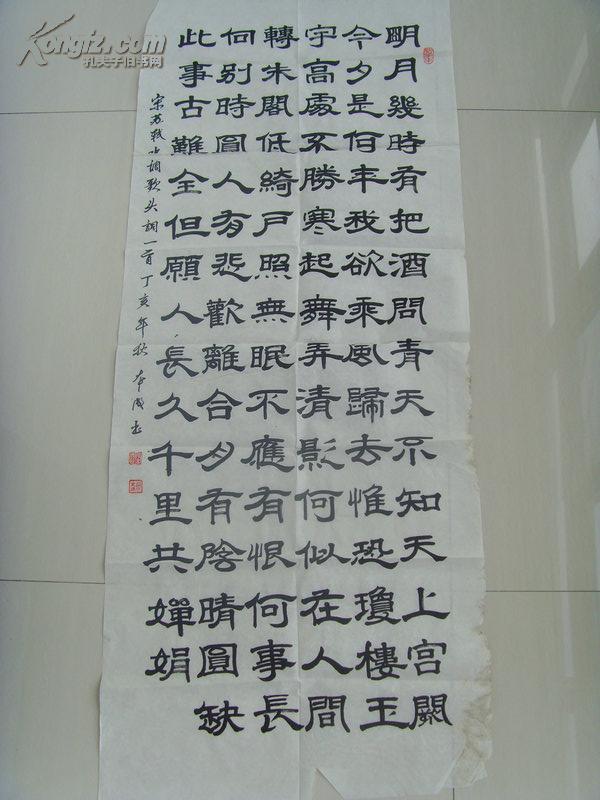 明月幾時有把酒問青天不知天上宮闕
今夕是何年我欲乘風歸去惟恐瓊樓玉
宇高處不勝寒起舞弄清影何似在人間
轉朱閣低綺戶照無眠不應有恨何事長
向别時圓人有悲歡離合月有陰晴圓缺
此事古難全但願人長久千里共嬋娟
宋苏轼水调歌头词一首丁亥年秋
Kongfz.com
孔夫子旧书网